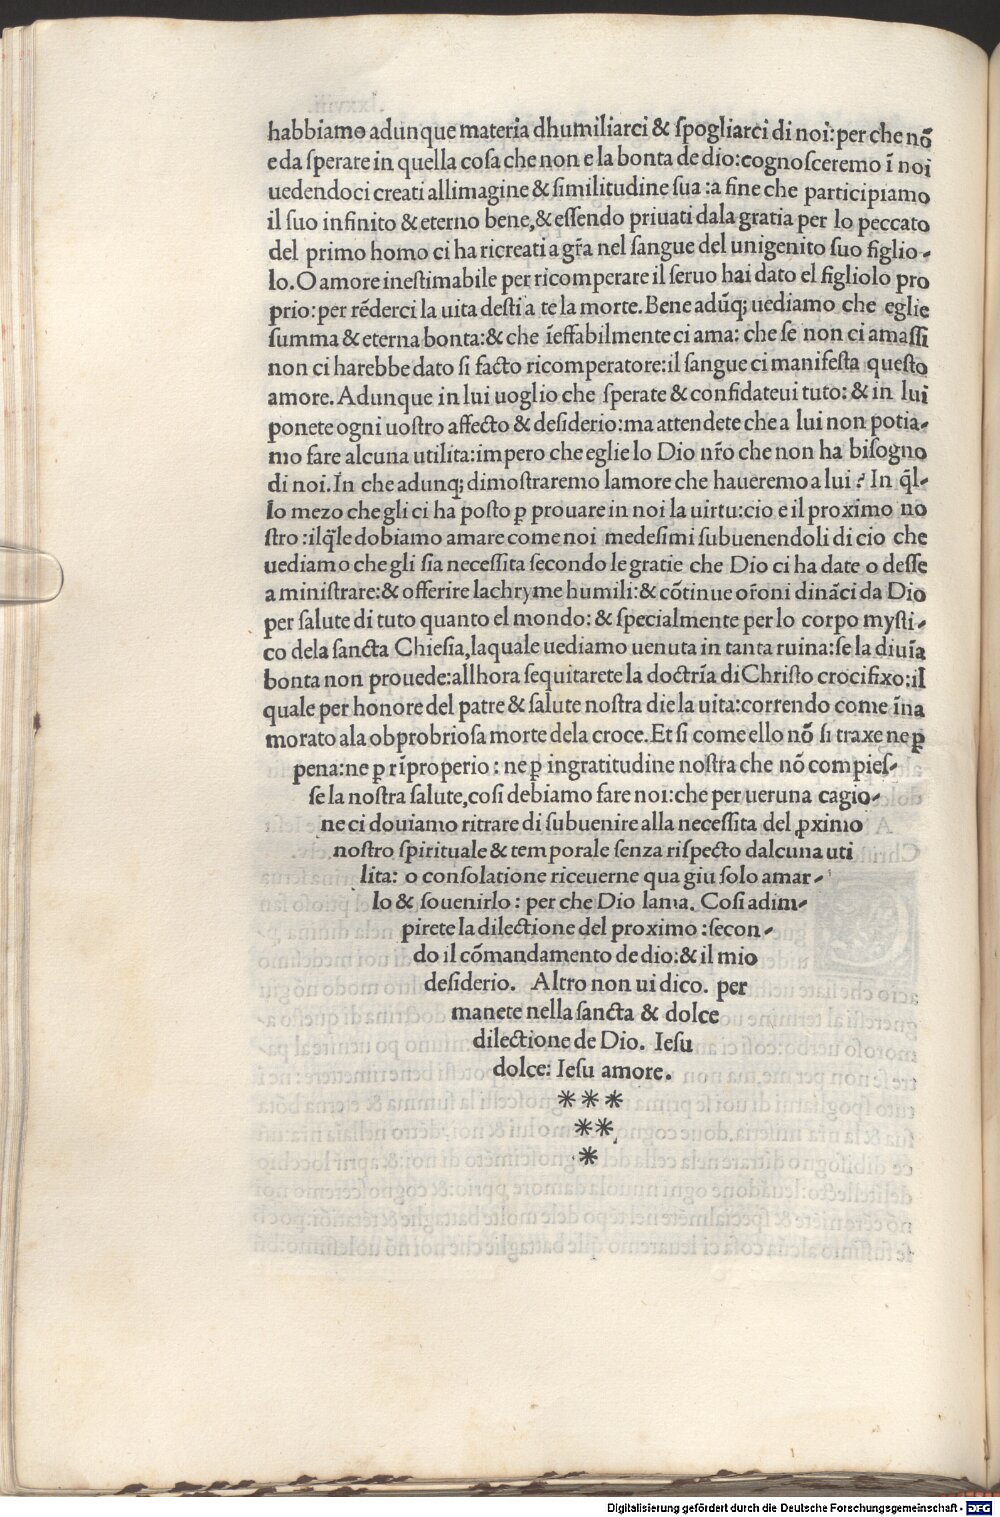 habbiamo adunque materia dhumiliarci & ſpogliarci di noi: per che nõ
e da ſperate in quella coſa che non e la bonta de dio: cognoſceremo ĩ noi
uedendoci creati allimagine & ſimilitudine ſua : a fine che participiamo
il ſuo infinito & eterno bene, & eſſendo priuati dala gratia per lo peccato
del primo homo ci ha ricreati a gr̃a nel ſangue del unigenito ſuo figlio-
lo. O amore ineſtimabile per ricomperare il ſeruo hai dato el figliolo pro
prio: per rẽderci la uita deſti a te la morte. Bene adũq; uediamo che eglie
ſumma & eterna bonta: & che ĩeffabilmente ci ama: che ſe non ci amaſſi
non ci harebbe dato ſi facto ricomperatore: il ſangue ci manifeſta queſto
amore. Adunque in lui uoglio che ſperate & confidateui tuto: & in lui
ponete ogni uoſtro affecto & deſiderio: ma attendete che a lui non potia-
mo fare alcuna utilita: impero che eglie lo Dio nr̃o che non ha biſogno
di noi. In che adunq; dimoſtraremo lamore che haueremo a lui ? In q̃l-
lo mezo che gli ci ha poſto ꝑ prouare in noi la uirtu: cio e il proximo no
ſtro : il q̃le dobiamo amare come noi medeſimi ſubuenendoli di cio che
uediamo che gli ſia neceſſita ſecondo le gratie che Dio ci ha date o deſſe
a miniſtrare: & offerire lachryme humili: & cõtinue or̃oni dinãci da Dio
per ſalute di tuto quanto el mondo: & ſpecialmente per lo corpo myſti-
co dela ſancta Chieſia, laquale uediamo uenuta in tanta ruina: ſe la diuĩa
bonta non prouede: allhora ſequitarete la doctrĩa di Chriſto crocifixo: il
quale per honore del patre & ſalute noſtra die la uita: correndo come ĩna
morato ala obprobrioſa morte dela croce. Et ſi come ello nõ ſi traxe ne ꝑ
pena: ne ꝑ rĩproperio : ne ꝑ ingratitudine noſtra che nõ compieſ-
ſe la noſtra ſalute, coſi debiamo fare noi: che per ueruna cagio-
ne ci douiamo ritrare di ſubuenire alla neceſſita del ꝓximo
noſtro ſpirituale & temporale ſenza riſpecto dalcuna uti
lita: o conſolatione riceuerne qua giu ſolo amar-
lo & ſouenirlo : per che Dio lama. Coſi adim-
pirete la dilectione del proximo : ſecon-
do il cõmandamento de dio: & il mio
deſiderio. Altro non ui dico. per
manete nella ſancta & dolce
dilectione de Dio. Ieſu
dolce: Ieſu amore.
✳ ✳ ✳
✳ ✳
✳
Digitalisierung gefördert durch die Deutsche Forschungsgemeinschaft - DFG